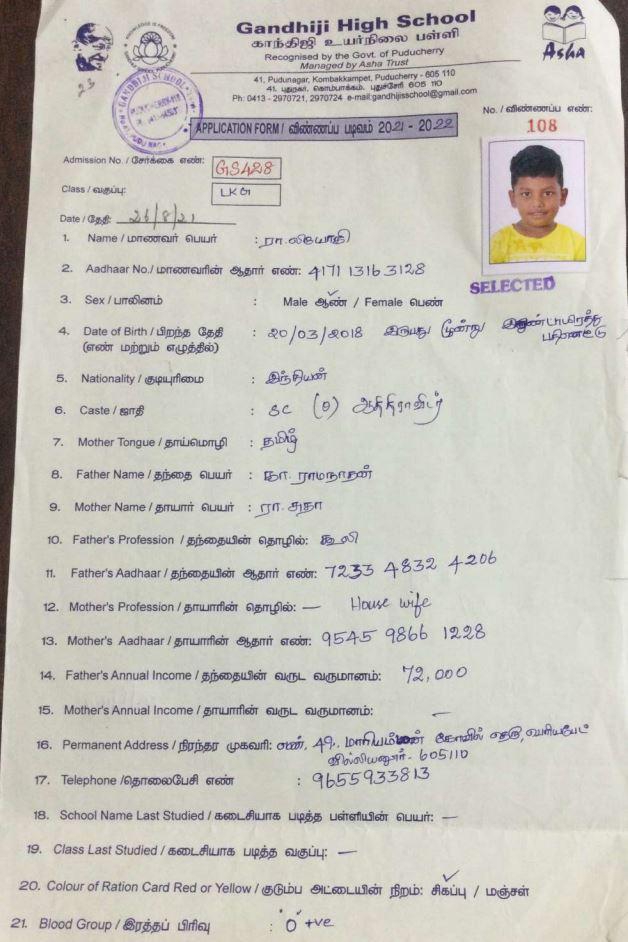 Gandhiji High School
காந்திஜி உயர்நிலை பள்ளி
Recognised by the Govt. of Puducherry
Managed by Asha Trust
Asha
41, Pudunagar, Kombakkampet, Puducherry - 605 110
41. புதுநகர், கொம்பாக்கம், புதுச்சேரி 605 110
Ph: 0413 - 2970721, 2970724 e-mail:gandhijisschool@gmail.com
23
GANDHIJI SCHOOL
APPLICATION FORM / விண்ணப்ப படிவம் 2021 - 2022
No. / விண்ணப்ப எண்:
108
Admission No. / சேர்க்கை எண்: GS428
Class / வகுப்பு: LKG
Date / தேதி: 26/8/21
SELECTED
1. Name / மாணவர் பெயர் : ரா.
2. Aadhaar No./ மாணவரின் ஆதார் எண்: 4171 1316 3128
3. Sex / பாலினம் : Male ஆண் / Female பெண்
4. Date of Birth / பிறந்த தேதி : 20/03/2018 இருபது மூன்று இரண்டாயிரத்து
(எண் மற்றும் எழுத்தில்) பதினெட்டு
5. Nationality / குடியுரிமை : இந்தியன்
6. Caste / ஜாதி : SC ஆதிதிராவிடர்
7. Mother Tongue / தாய்மொழி : தமிழ்
8. Father Name / தந்தை பெயர் : ராமநாதன்
9. Mother Name / தாயார் பெயர் : ரா. சுதா
10. Father's Profession / தந்தையின் தொழில்: கூலி
11. Father's Aadhaar / தந்தையின் ஆதார் எண்: 7233 4832 4206
12. Mother's Profession / தாயாரின் தொழில்: — House wife
13. Mother's Aadhaar / தாயாரின் ஆதார் எண்: 9545 9866 1228
14. Father's Annual Income / தந்தையின் வருட வருமானம்: 72,000
15. Mother's Annual Income / தாயாரின் வருட வருமானம்: —
16. Permanent Address / நிரந்தர முகவரி: எண், 49, மாரியம்மன் கோவில் தெரு,
வில்லியனூர் - 605110
17. Telephone /தொலைபேசி எண் : 9655933813
18. School Name Last Studied / கடைசியாக படித்த பள்ளியின் பெயர்: —
19. Class Last Studied / கடைசியாக படித்த வகுப்பு: —
20. Colour of Ration Card Red or Yellow / குடும்ப அட்டையின் நிறம்: சிகப்பு / மஞ்சள்
21. Blood Group / இரத்தப் பிரிவு : 'O' +ve